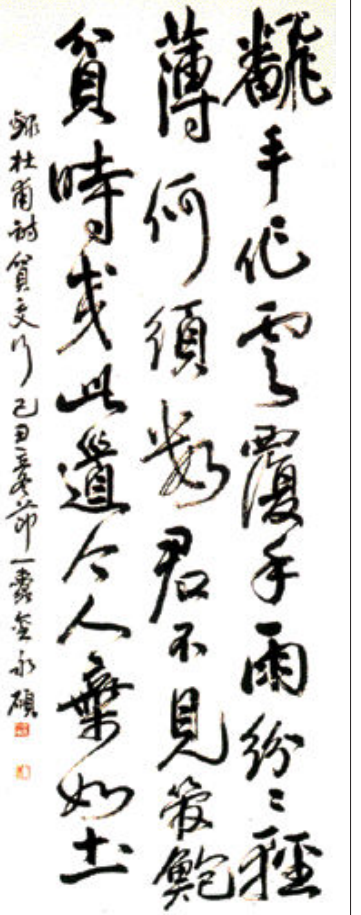 飜手作雲覆手雨紛〻輕
薄何須數君不見管鮑
貧時交此道今人棄如土
錄杜甫詩貧交行己丑節一金永碩